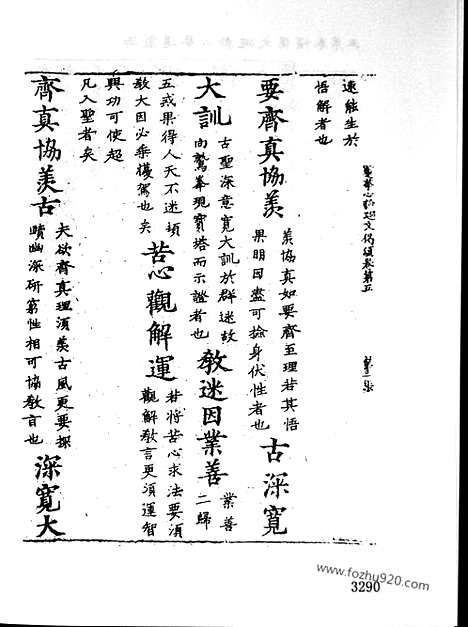 蓮華心輪廻文偈頌卷第五 第二張
遠能生於
悟解者也
要齊真協羨
羨協真如要齊至理若其悟
果明因盡可撿身伏性者也
古深寬
大訓
古聖深意寬大訓於群迷故
向鷲峯現寶塔而示證者也
教迷因業善
業善
二歸
五戒果得人天不迷頓
教大因必乘駕也矣
苦心觀解運
若將苦心求法要須
觀解教言更須運智
與功可使超
凡入聖者矣
齊真協羨古
夫欲齊真理須羨古風更要探
賾幽深研窮性相可協教言也
深寬大
www.fozhu920.com
3290